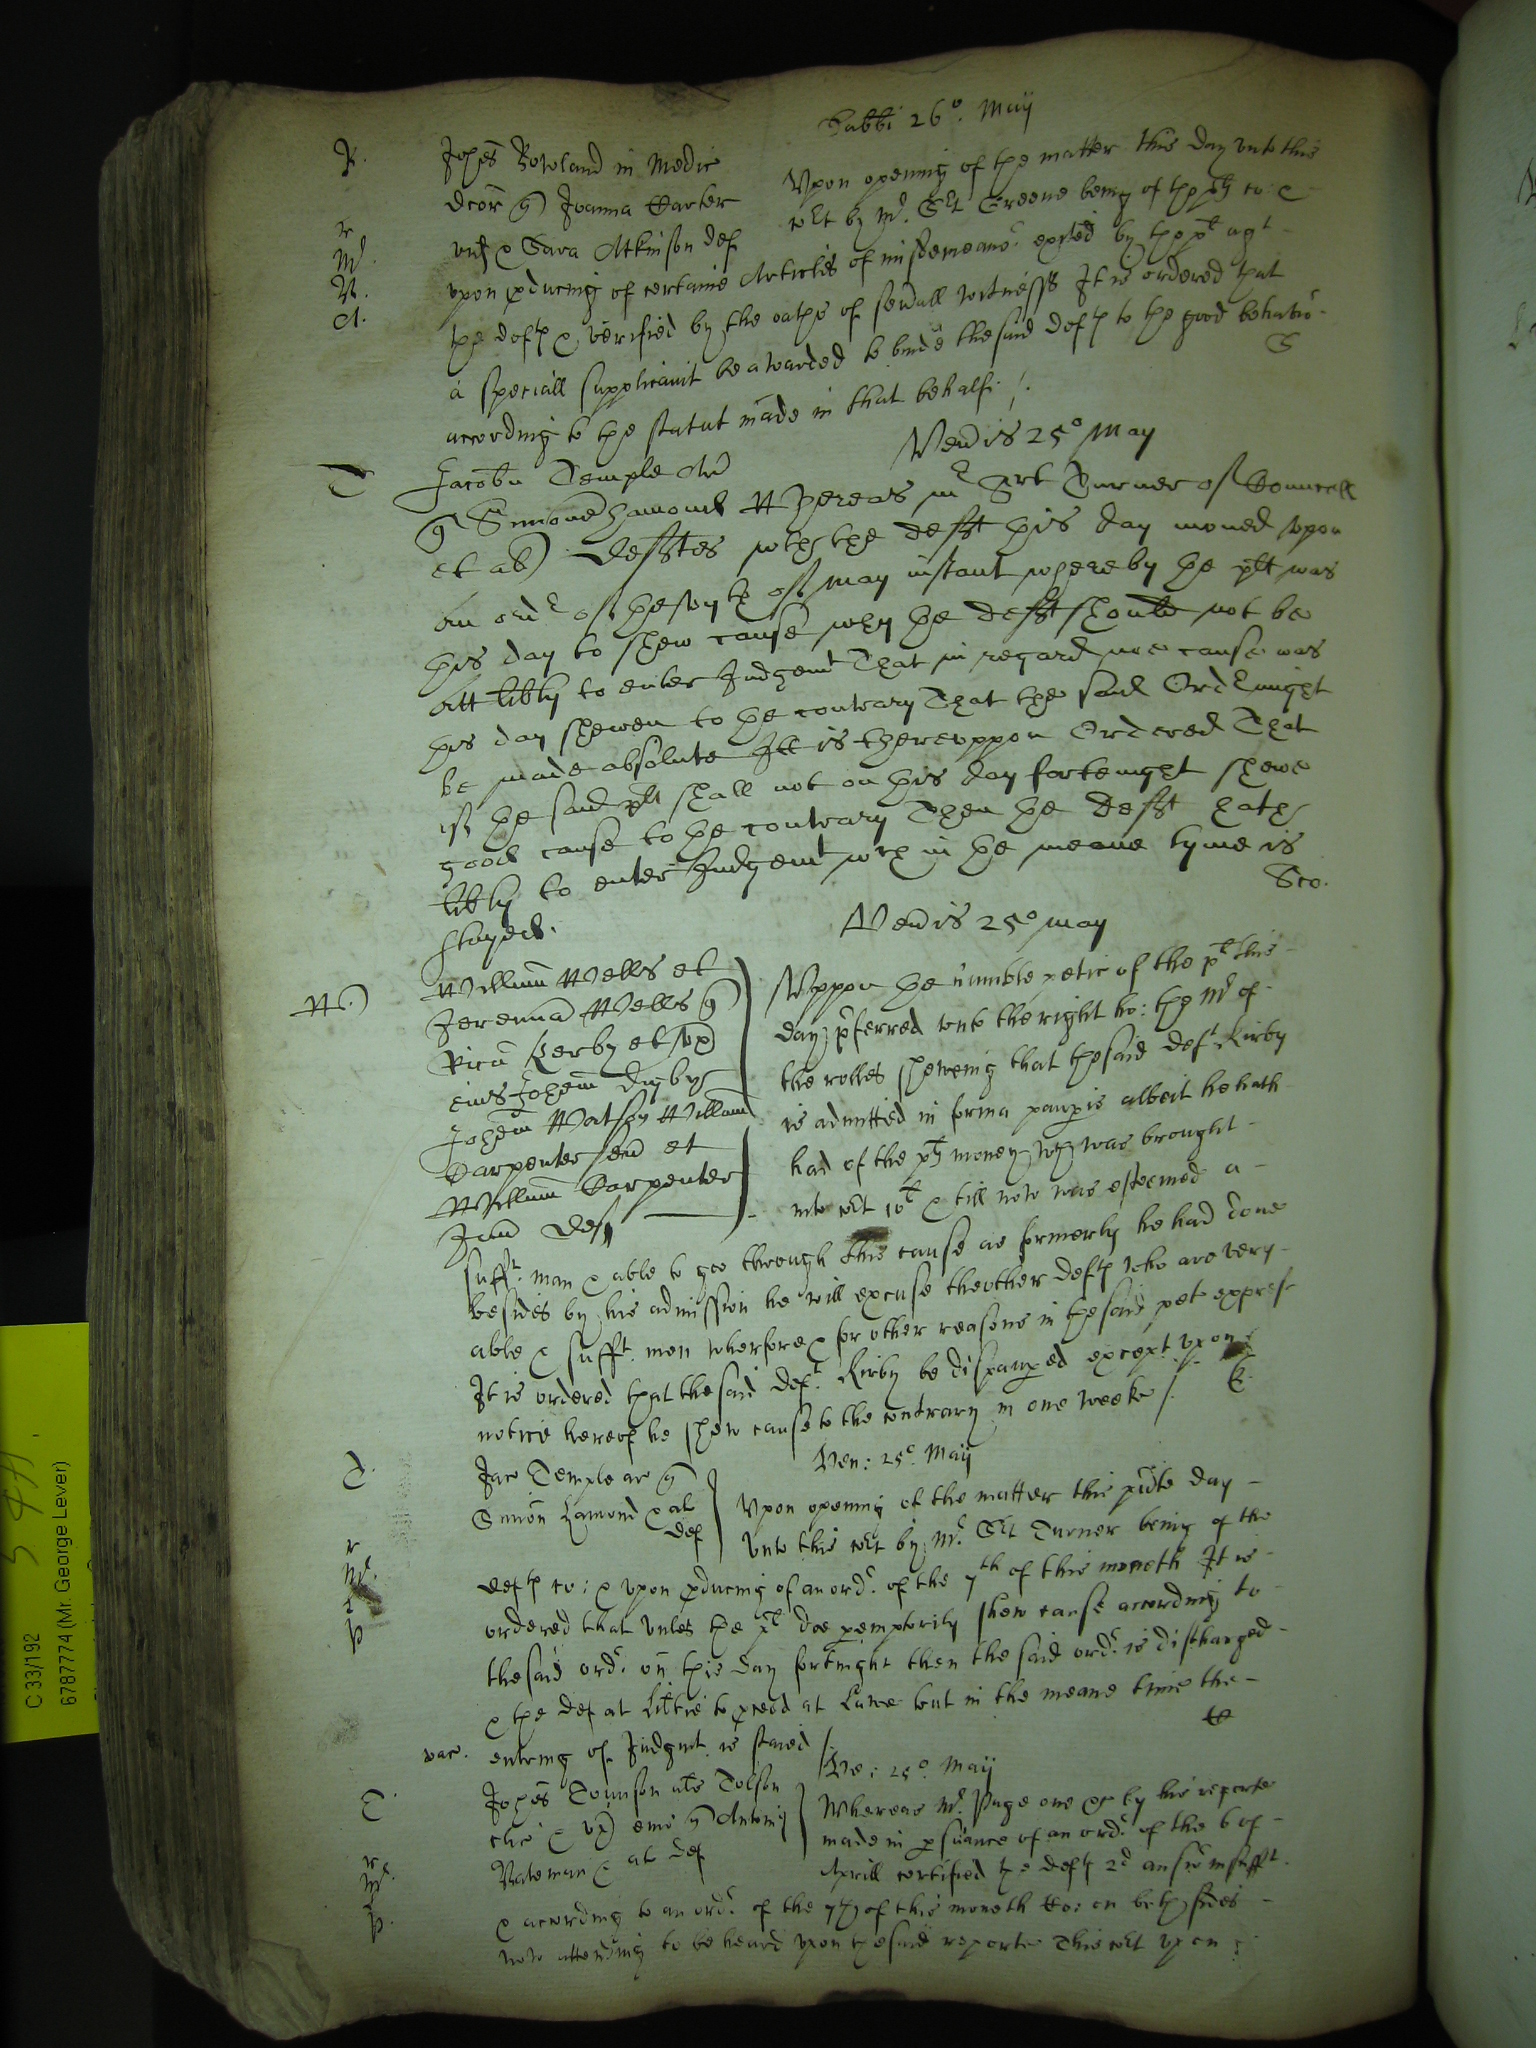 Sabbi 26º. Maij
R.
Johes Rowland in Medic
Upon opening of the matter this day unto this
dcor q Joanna Carter
cort by Mr. Sert Greene being of the plts co: &
vid & Sara Atkinson def
r
Mr.
R.
A.
upon pducing of certaine Articles of misdemeanor exhited by the plt agt
the defts & verified by the oaths of sevall witnesses It is ordered that
a speciall supplicavit be awarded to binde the said defts to the good behavior
S
according to the statut made in that behalfe /.
Venis 25º May
T
Jacobu Temple Ar
q Simone Hamond Whereas mr Sert Turner of Councell
et al Defftes wth the defft this day moved uppon
an ordr of the of May instant whereby the plt was
this day to shew cause why the defft should not be
att libty to enter Judgemt That in regard noe cause was
this day shewen to the contrary That the said Ordr might
be made absolute Itt is thereuppon Ordered That
if the said plt shall not on this day fortenight shewe
good cause to the contrary Then the Defft hath
libty to enter Judgemt wch in the meane tyme is
Sco.
stayed.
Venis 25º May
W.
Willum Wells et
Jeremia Wells q
Ricu Kerby et ux
eius Johem Digbye
Johem Watson Willum
Carpenter sen et
Willum Carpenter
Jun Def
Uppon the humble petic of the plt this
day pferred unto the right ho: the Mr of
the rolles shewing that the said deft Kirby
is admitted in forma paupis albeit he hath
had of the plts money wch was brought
into cort 10l & till now was esteemed a
sufft. man & able to goe through this cause as formerly he had done
besides by his admission he will excuse thother defts who are very
able & sufft. men wherfore & for other reasons in the said pet exprest
It is ordered that the said deft. Kirby be dispauped except upon
notice hereof he shew cause to the contrary in one weeke /.
K.
Ven: 25º. Maij
T.
Jac Temple ar q
Simon Hamond & al
def
Upon opening of the matter this pnte day
unto this cort by Mr. Sert Turner being of the
r
Mr.
t
p
defts co: & upon pducing of an ordr. of the 7th of this moneth It is
ordered that unles the plt doe pemptorily shew cause according to
the said ordr. on this day fortnight then the said ordr. is discharged
& the def at Libtie to pceed at Lawe but in the meane time the
vac.
entring of Judgmt. is staied /
Ve: 25º. Maij
T.
Johes Townson als Tolson
clic & ux eius q Antoniu
Bateman & al def
Whereas Mr. Page one &c by his reporte
made in psuance of an ordr. of the 6 of
Aprill certified the defts 2d answ insufft.
r
Mr.
p.
& according to an ordr. of the 7th of this moneth co: on both sides
now attending to be heard upon the said reporte This cort upon
C 33/192
6787774 (Mr. George Lever)